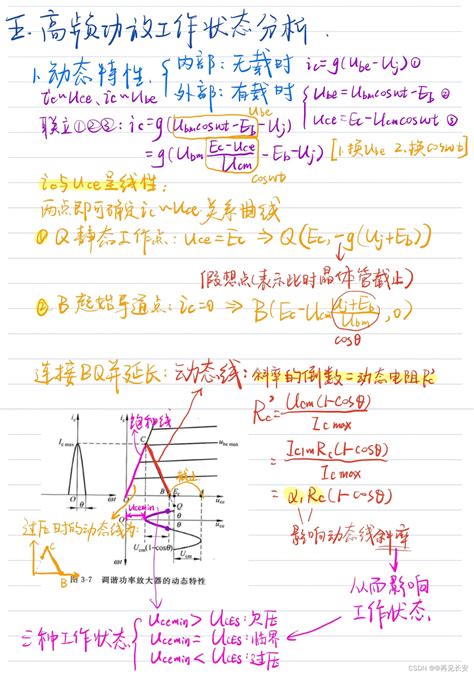 五.高频功放工作状态分析.
1.动态特性
内部:无载时 ic=g(Ube-Uj)①
ic~Uce、ic~Ube
外部:有载时
Ube=Ubmcosωt-Eb②
Uce=Ec-Ucmcosωt③
Ube
联立①②③:ic=g(Ubmcosωt-Eb-Uj)
=g(Ubm Ec-Uce/Ucm -Eb-Uj) [1.换Ube 2.换cosωt]
cosωt
ic与Uce呈线性:
两点即可确定ic~Uce关系曲线
① Q静态工作点:Uce=Ec ⇒ Q(Ec,-g(Uj+Eb))
(假想点(表示此时晶体管截止)
② B起始导通点:ic=0 ⇒ B(Ec-Ucm Uj+Eb/Ubm,0)
cosθ
连接BQ并延长:动态线:斜率的倒数=动态电阻Rc'
Rc'=Ucm(1-cosθ)/Icmax
=Ic1mRc(1-cosθ)/Icmax
=α1Rc(1-cosθ)
影响动态线斜率
从而影响
工作状态.
饱和线
ic
ic
Ic max
C
ube max
截止
O
ωt
O
B
Ec
uce
Ucemin
Q
θ
θ
过压时的动态线为:
Ucm(1-cosθ)
Ucm
ωt
C
B
图 3-7 调谐功率放大器的动态特性
三种工作状态
Ucemin>UCES:欠压
Ucemin=UCES:临界
Ucemin<UCES:过压
CSDN @再见长安